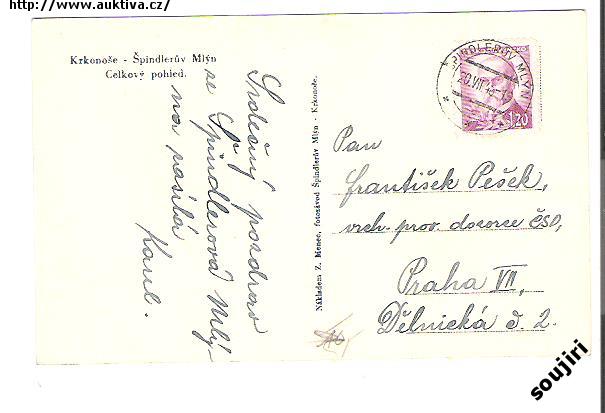 http://www.auktiva.cz/
Krkonoše - Špindlerův Mlýn
Celkový pohled.
Srdečný pozdrav
ze Špindlerova Mlý-
na zasílá
Karel.
Nákladem Z. Menec, fotozávod Špindlerův Mlýn - Krkonoše.
ŠPINDLERŮV MLÝN
20.VII.
1.20
Pan
František Pešek,
vrch. prov. dozorce ČSD,
Praha VII,
Dělnická č. 2.
soujiri